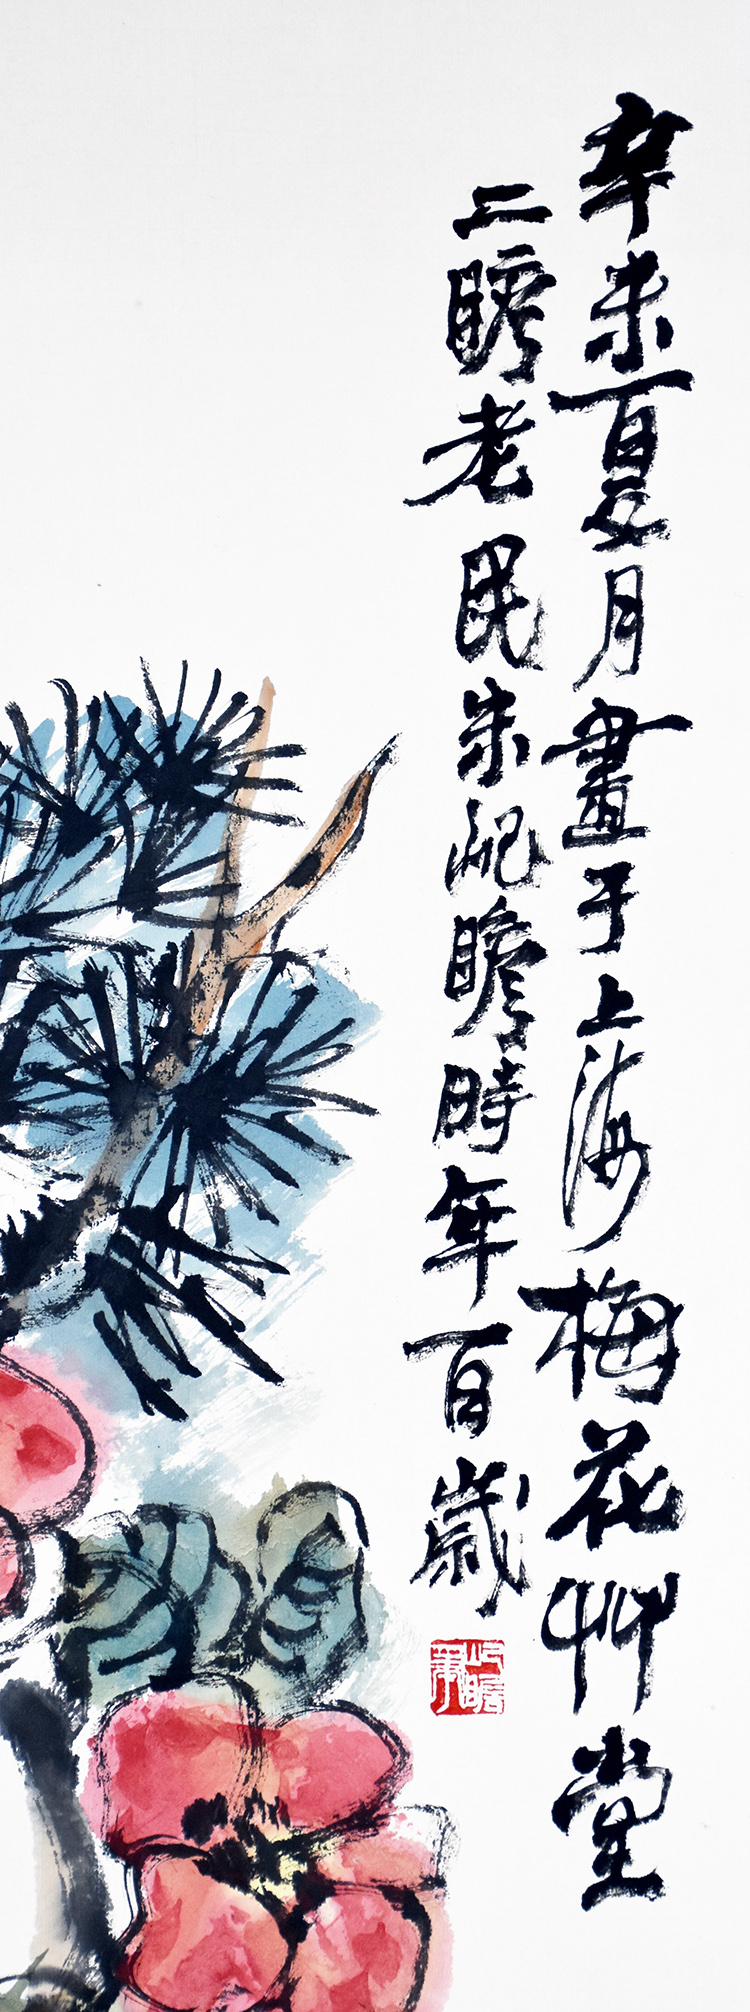 辛未夏月畫于上海梅花艸堂
二瞻老民朱屺瞻時年百歲
屺瞻